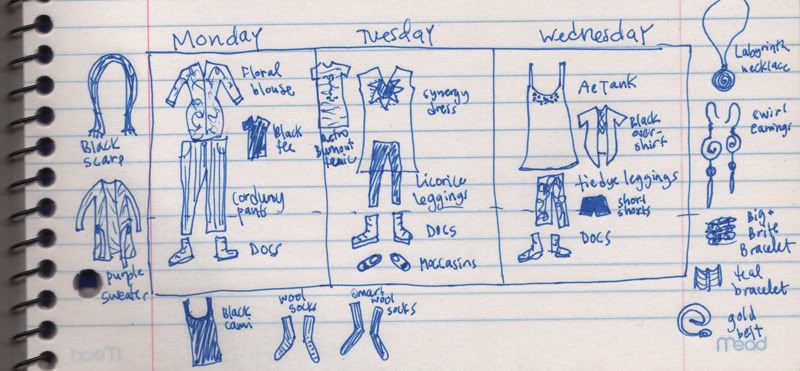 Monday
Tuesday
Wednesday
Black
scarf
purple
sweater
Floral
blouse
Black
tee
Corduroy
pants
Docs
Burnout
tunic
synergy
dress
Licorice
leggings
Docs
Moccasins
Ae Tank
Black
over-
shirt
tiedye leggings
short
shorts
Docs
Labyrinth
necklace
swirl
earrings
Big +
Brite
Bracelet
teal
bracelet
gold
belt
Black
cami
wool
socks
smart
wool
socks
Mead